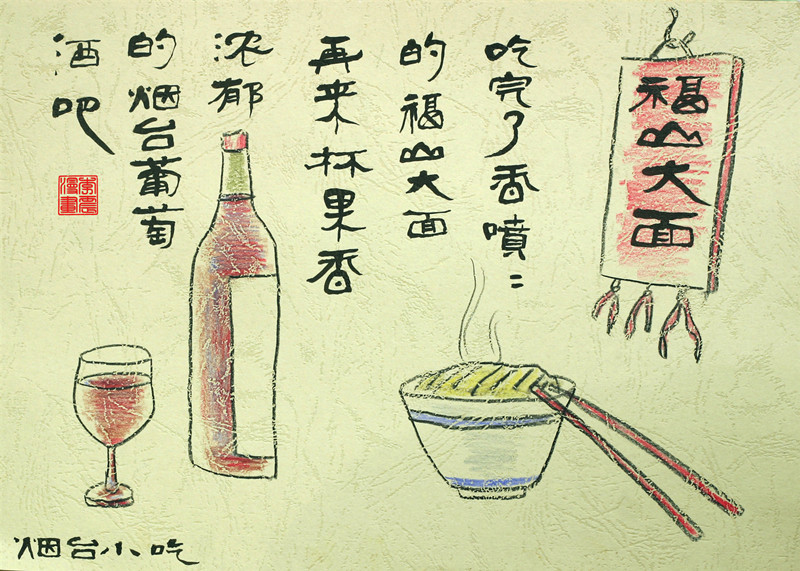 福山大面
吃完了香噴〻
的福山大面
再来杯果香
浓郁
的烟台葡萄
酒吧
李震
漫畫
烟台小吃